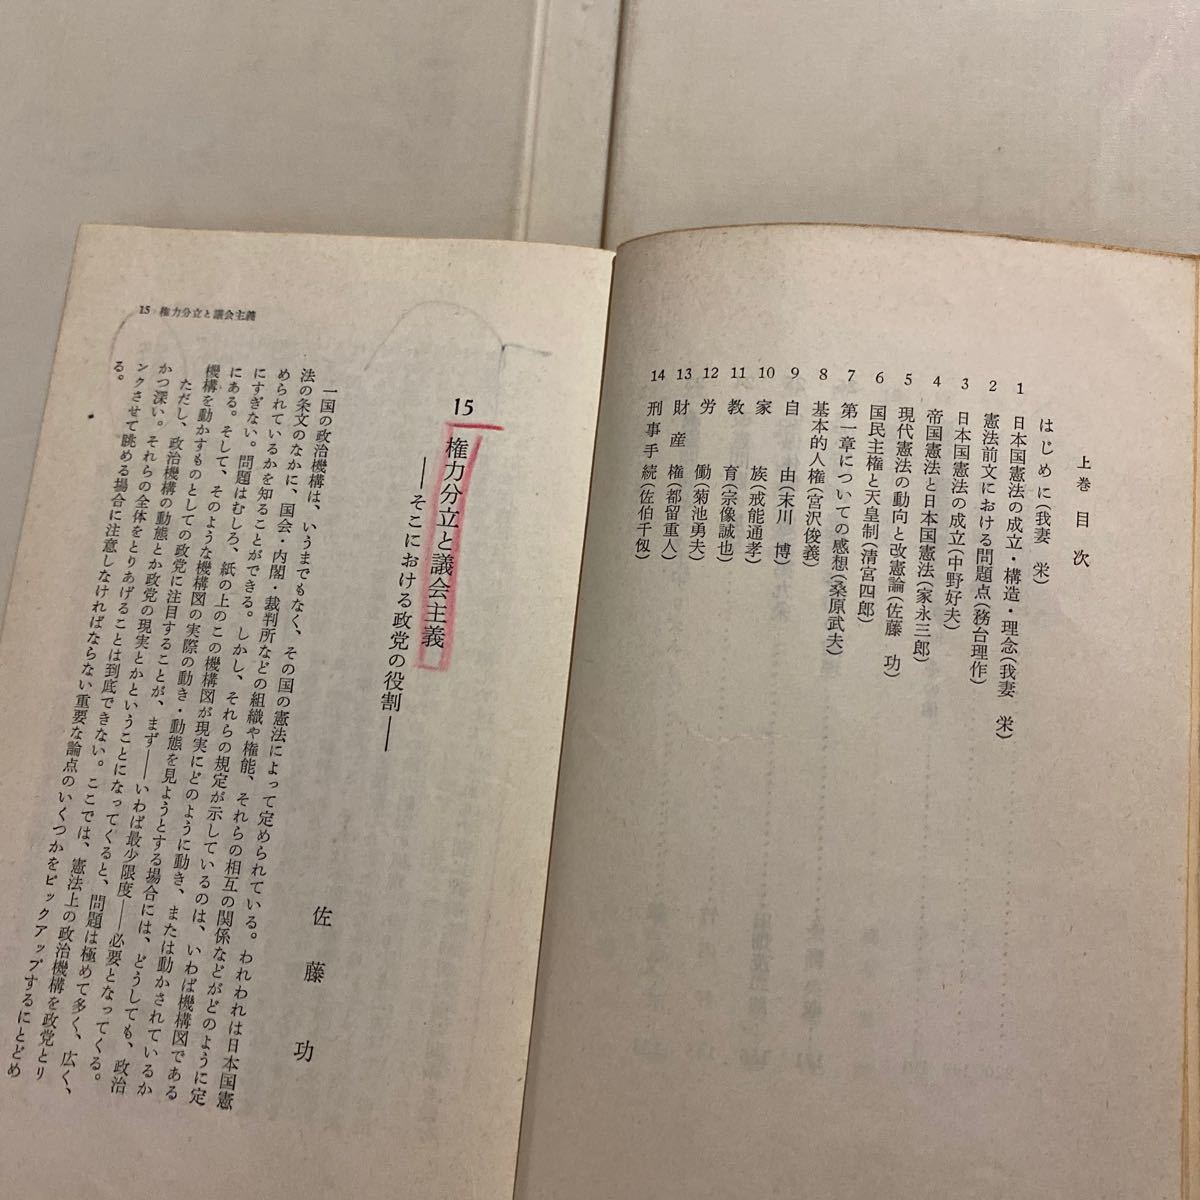 上巻目次
はじめに(我妻 栄)
1 日本国憲法の成立・構造・理念(我妻 栄)
2 憲法前文における問題点(務台理作)
3 日本国憲法の成立(中野好夫)
4 帝国憲法と日本国憲法(家永三郎)
5 現代憲法の動向と改憲論(佐藤 功)
6 国民主権と天皇制(清宮四郎)
7 第一章についての感想(桑原武夫)
8 基本的人権(宮沢俊義)
9 自由(末川 博)
10 家族(戒能通孝)
11 教育(宗像誠也)
12 労働(菊池勇夫)
13 財産権(都留重人)
14 刑事手続(佐伯千仭)
15 権力分立と議会主義
15 権力分立と議会主義
――そこにおける政党の役割――
佐藤功
一国の政治機構は、いうまでもなく、その国の憲法によって定められている。われわれは日本国憲
法の条文のなかに、国会・内閣・裁判所などの組織や権能、それらの相互の関係などがどのように定
められているかを知ることができる。しかし、それらの規定が示しているのは、いわば機構図である
にすぎない。問題はむしろ、紙の上のこの機構図が現実にどのように動き、または動かされているか
にある。そして、そのような機構図の実際の動き・動態を見ようとする場合には、どうしても、政治
機構を動かすものとしての政党に注目することが、まず――いわば最少限度――必要となってくる。
ただし、政治機構の動態とか政党の現実とかということになってくると、問題は極めて多く、広く、
かつ深い。それらの全体をとりあげることは到底できない。ここでは、憲法上の政治機構を政党とリ
ンクさせて眺める場合に注意しなければならない重要な論点のいくつかをピックアップするにとどめ
る。